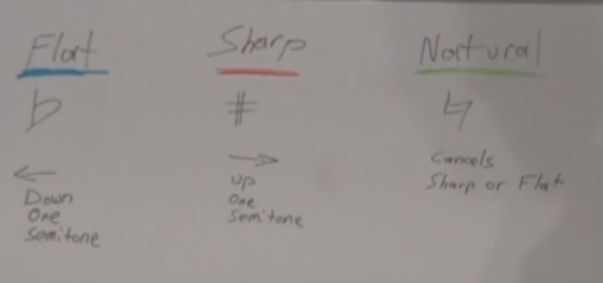 Flat
♭
←
Down
One
Semitone
Sharp
#
→
Up
One
Semitone
Natural
♮
Cancels
Sharp or Flat